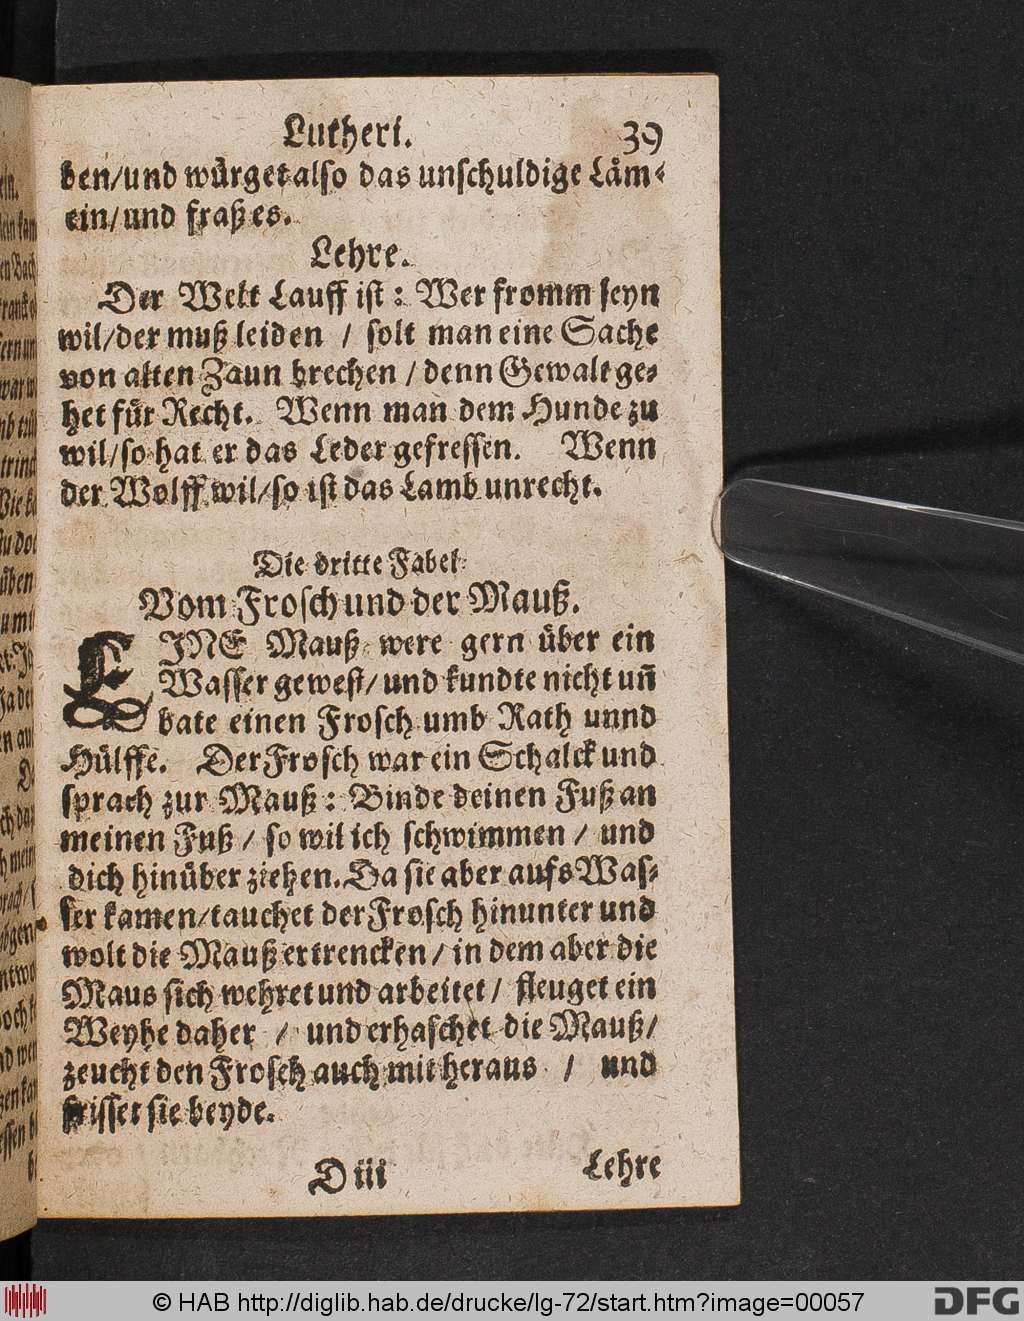 Lutheri. 39
ben/und würget also das unschuldige Läm-
ein/und fraß es.
Lehre.
Der Welt Lauff ist: Wer fromm seyn
wil/der muß leiden / solt man eine Sache
von alten Zaun brechen / denn Gewalt ge-
het für Recht. Wenn man dem Hunde zu
wil/so hat er das Leder gefressen. Wenn
der Wolff wil/so ist das Lamb unrecht.
Die dritte Fabel
Vom Frosch und der Mauß.
EINE Mauß were gern über ein
Wasser gewest/und kundte nicht uñ
bate einen Frosch umb Rath unnd
Hülffe. Der Frosch war ein Schalck und
sprach zur Mauß: Binde deinen Fuß an
meinen Fuß / so wil ich schwimmen / und
dich hinüber ziehen. Da sie aber aufs Was-
ser kamen/tauchet der Frosch hinunter und
wolt die Mauß ertrencken/in dem aber die
Maus sich wehret und arbeitet/ fleuget ein
Weyhe daher / und erhaschet die Mauß/
zeucht den Frosch auch mit heraus / und
frisset sie beyde.
D iii Lehre
© HAB http://diglib.hab.de/drucke/lg-72/start.htm?image=00057 DFG